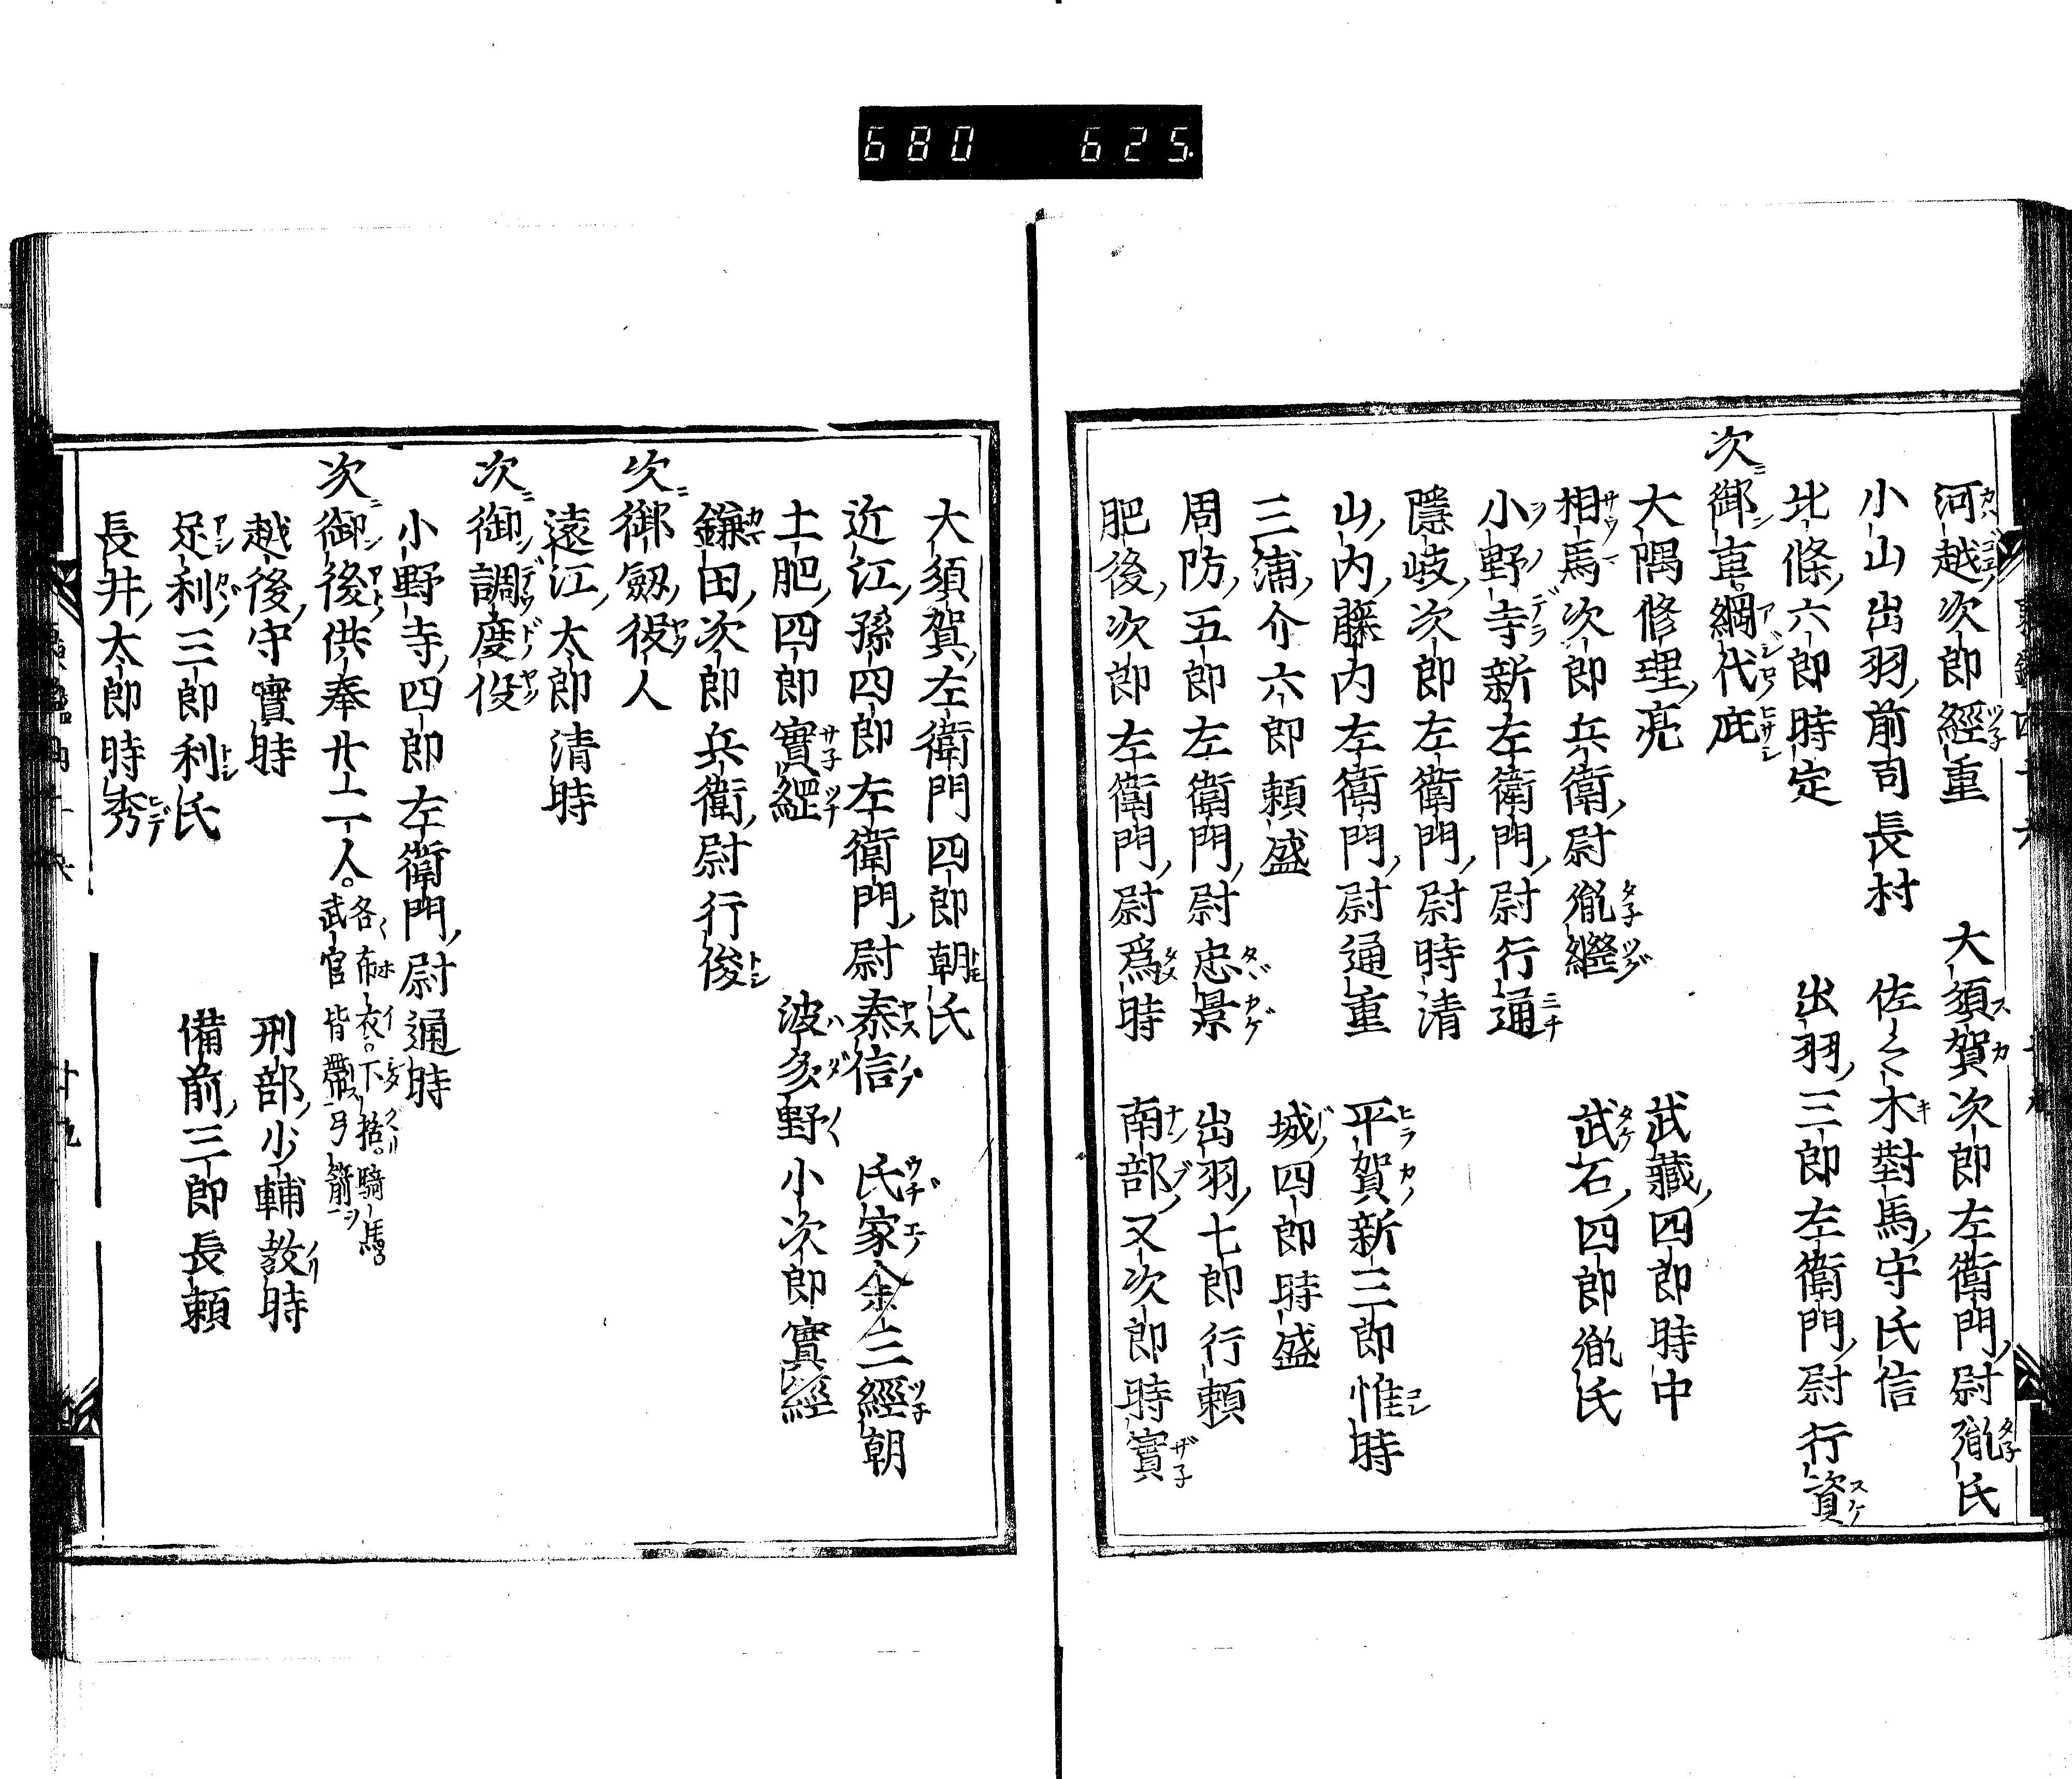 680 625
河越次郎經重 大須賀次郎左衛門尉胤氏
小山出羽前司長村 佐々木對馬守氏信
北條六郎時定 出羽三郎左衛門尉行資
次御車網代庇
大隅修理亮 武藏四郎時中
相馬次郎兵衛尉胤繼 武石四郎胤氏
小野寺新左衛門尉行通
隱岐次郎左衛門尉時清
山内藤内左衛門尉通重 平賀新三郎惟時
三浦介六郎頼盛 城四郎時盛
周防五郎左衛門尉忠景 出羽七郎行頼
肥後次郎左衛門尉爲時 南部又次郎時實
大須賀左衛門四郎朝氏
近江孫四郎左衛門尉泰信 氏家余三經朝
土肥四郎實綱 波多野小次郎實經
鎌田次郎兵衛尉行俊
次御劔役人
遠江太郎清時
次御調度役
小野寺四郎左衛門尉通時
次御後供奉廿二人。各布衣。下括。騎馬。武官皆帶弓箭
越後守實時 刑部少輔教時
足利三郎利氏 備前三郎長頼
長井太郎時秀